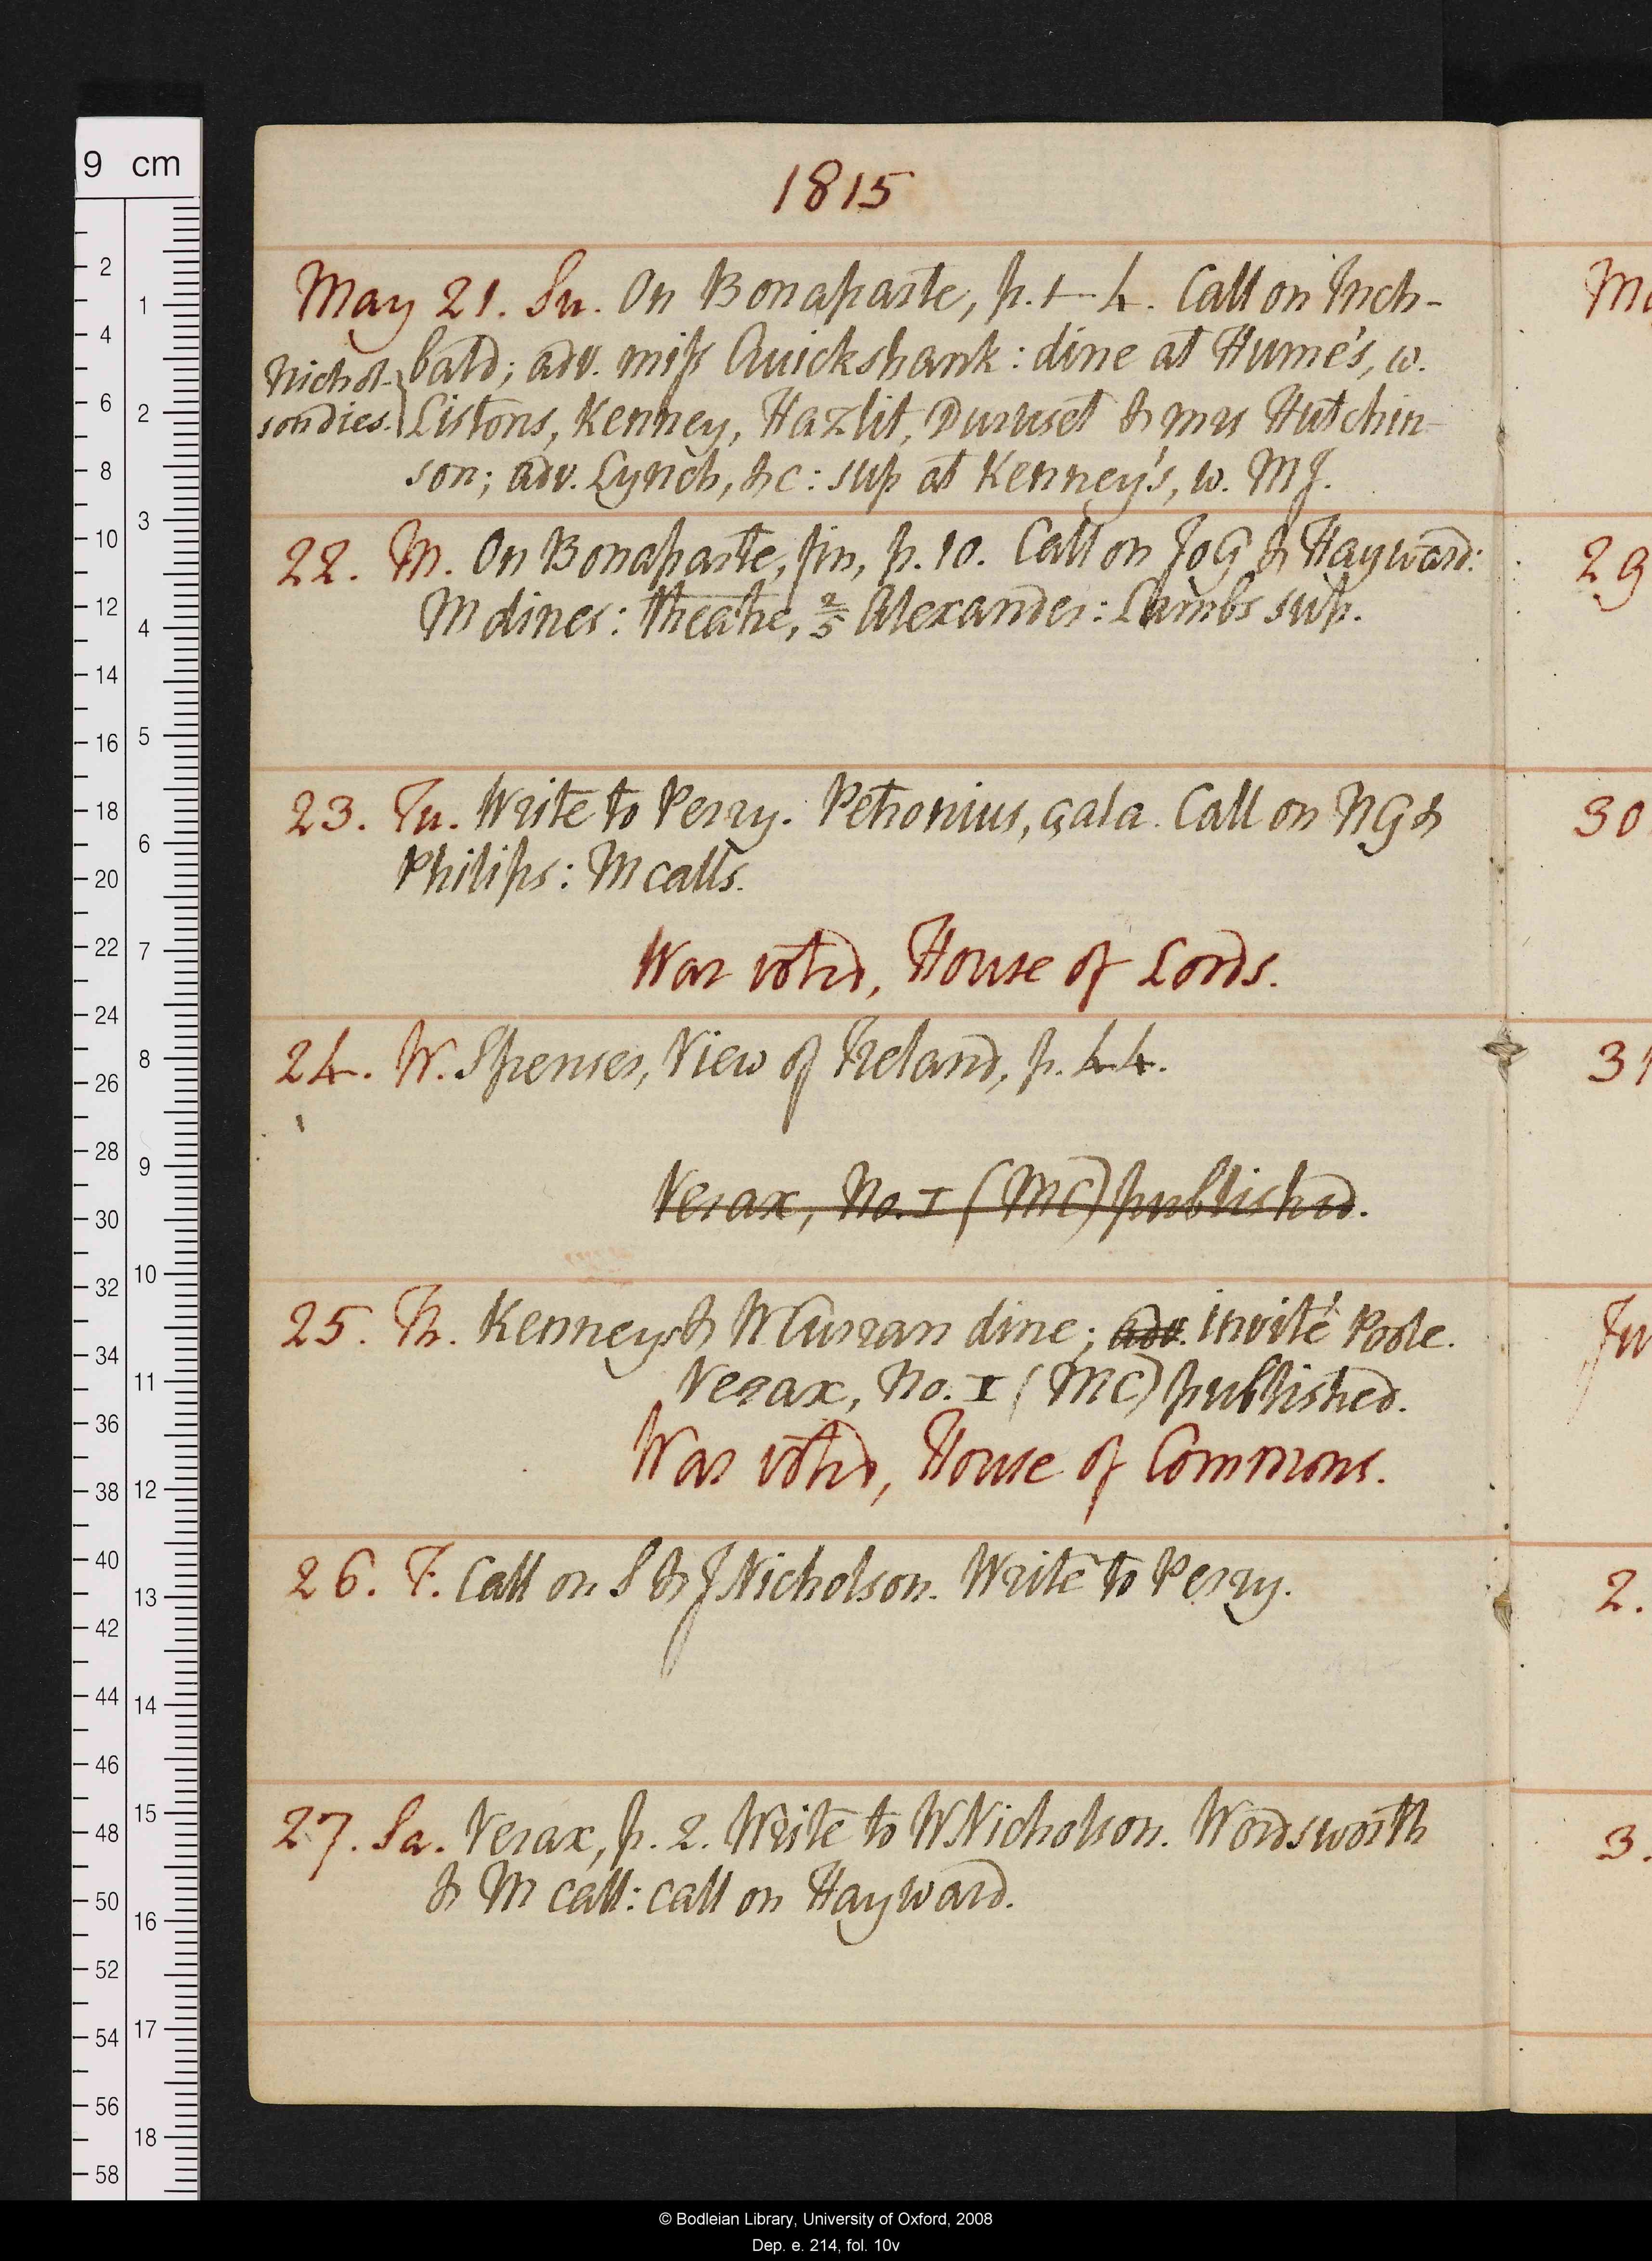 1815
May 21. Su. On Bonaparte, p. 1–4. Call on Inch-
bald; adv. miss Cruickshank: dine at Hume's, w.
Nichol-
son dies.
Listons, Kenney, Hazlit, Duruset & mrs Hutchin-
son; adv. Lynch, &c: sup at Kenney's, w. MJ.
22. M. On Bonaparte, fin, p. 10. Call on JoG & Hayward:
M dines: theatre, 2/5 Alexander: Lambs sup.
23. Tu. Write to Perry. Petronius, çala. Call on NG &
Philips: M calls.
War voted, House of Lords.
24. W. Spenser, View of Ireland, p. 44.
Verax, No. I (MC) published.
25. Th. Kenneys & W Curran dine; adv. invité Poole.
Verax, No. I (MC) published.
War voted, House of Commons.
26. F. Call on S & J Nicholson. Write to Perry.
27. Sa. Verax, p. 2. Write to W Nicholson. Wordsworth
& M call: call on Hayward.
29
30
31
2.
3.
9 cm
2
4
6
8
10
12
14
16
18
20
22
24
26
28
30
32
34
36
38
40
42
44
46
48
50
52
54
56
58
1
2
3
4
5
6
7
8
9
10
11
12
13
14
15
16
17
18
© Bodleian Library, University of Oxford, 2008
Dep. e. 214, fol. 10v